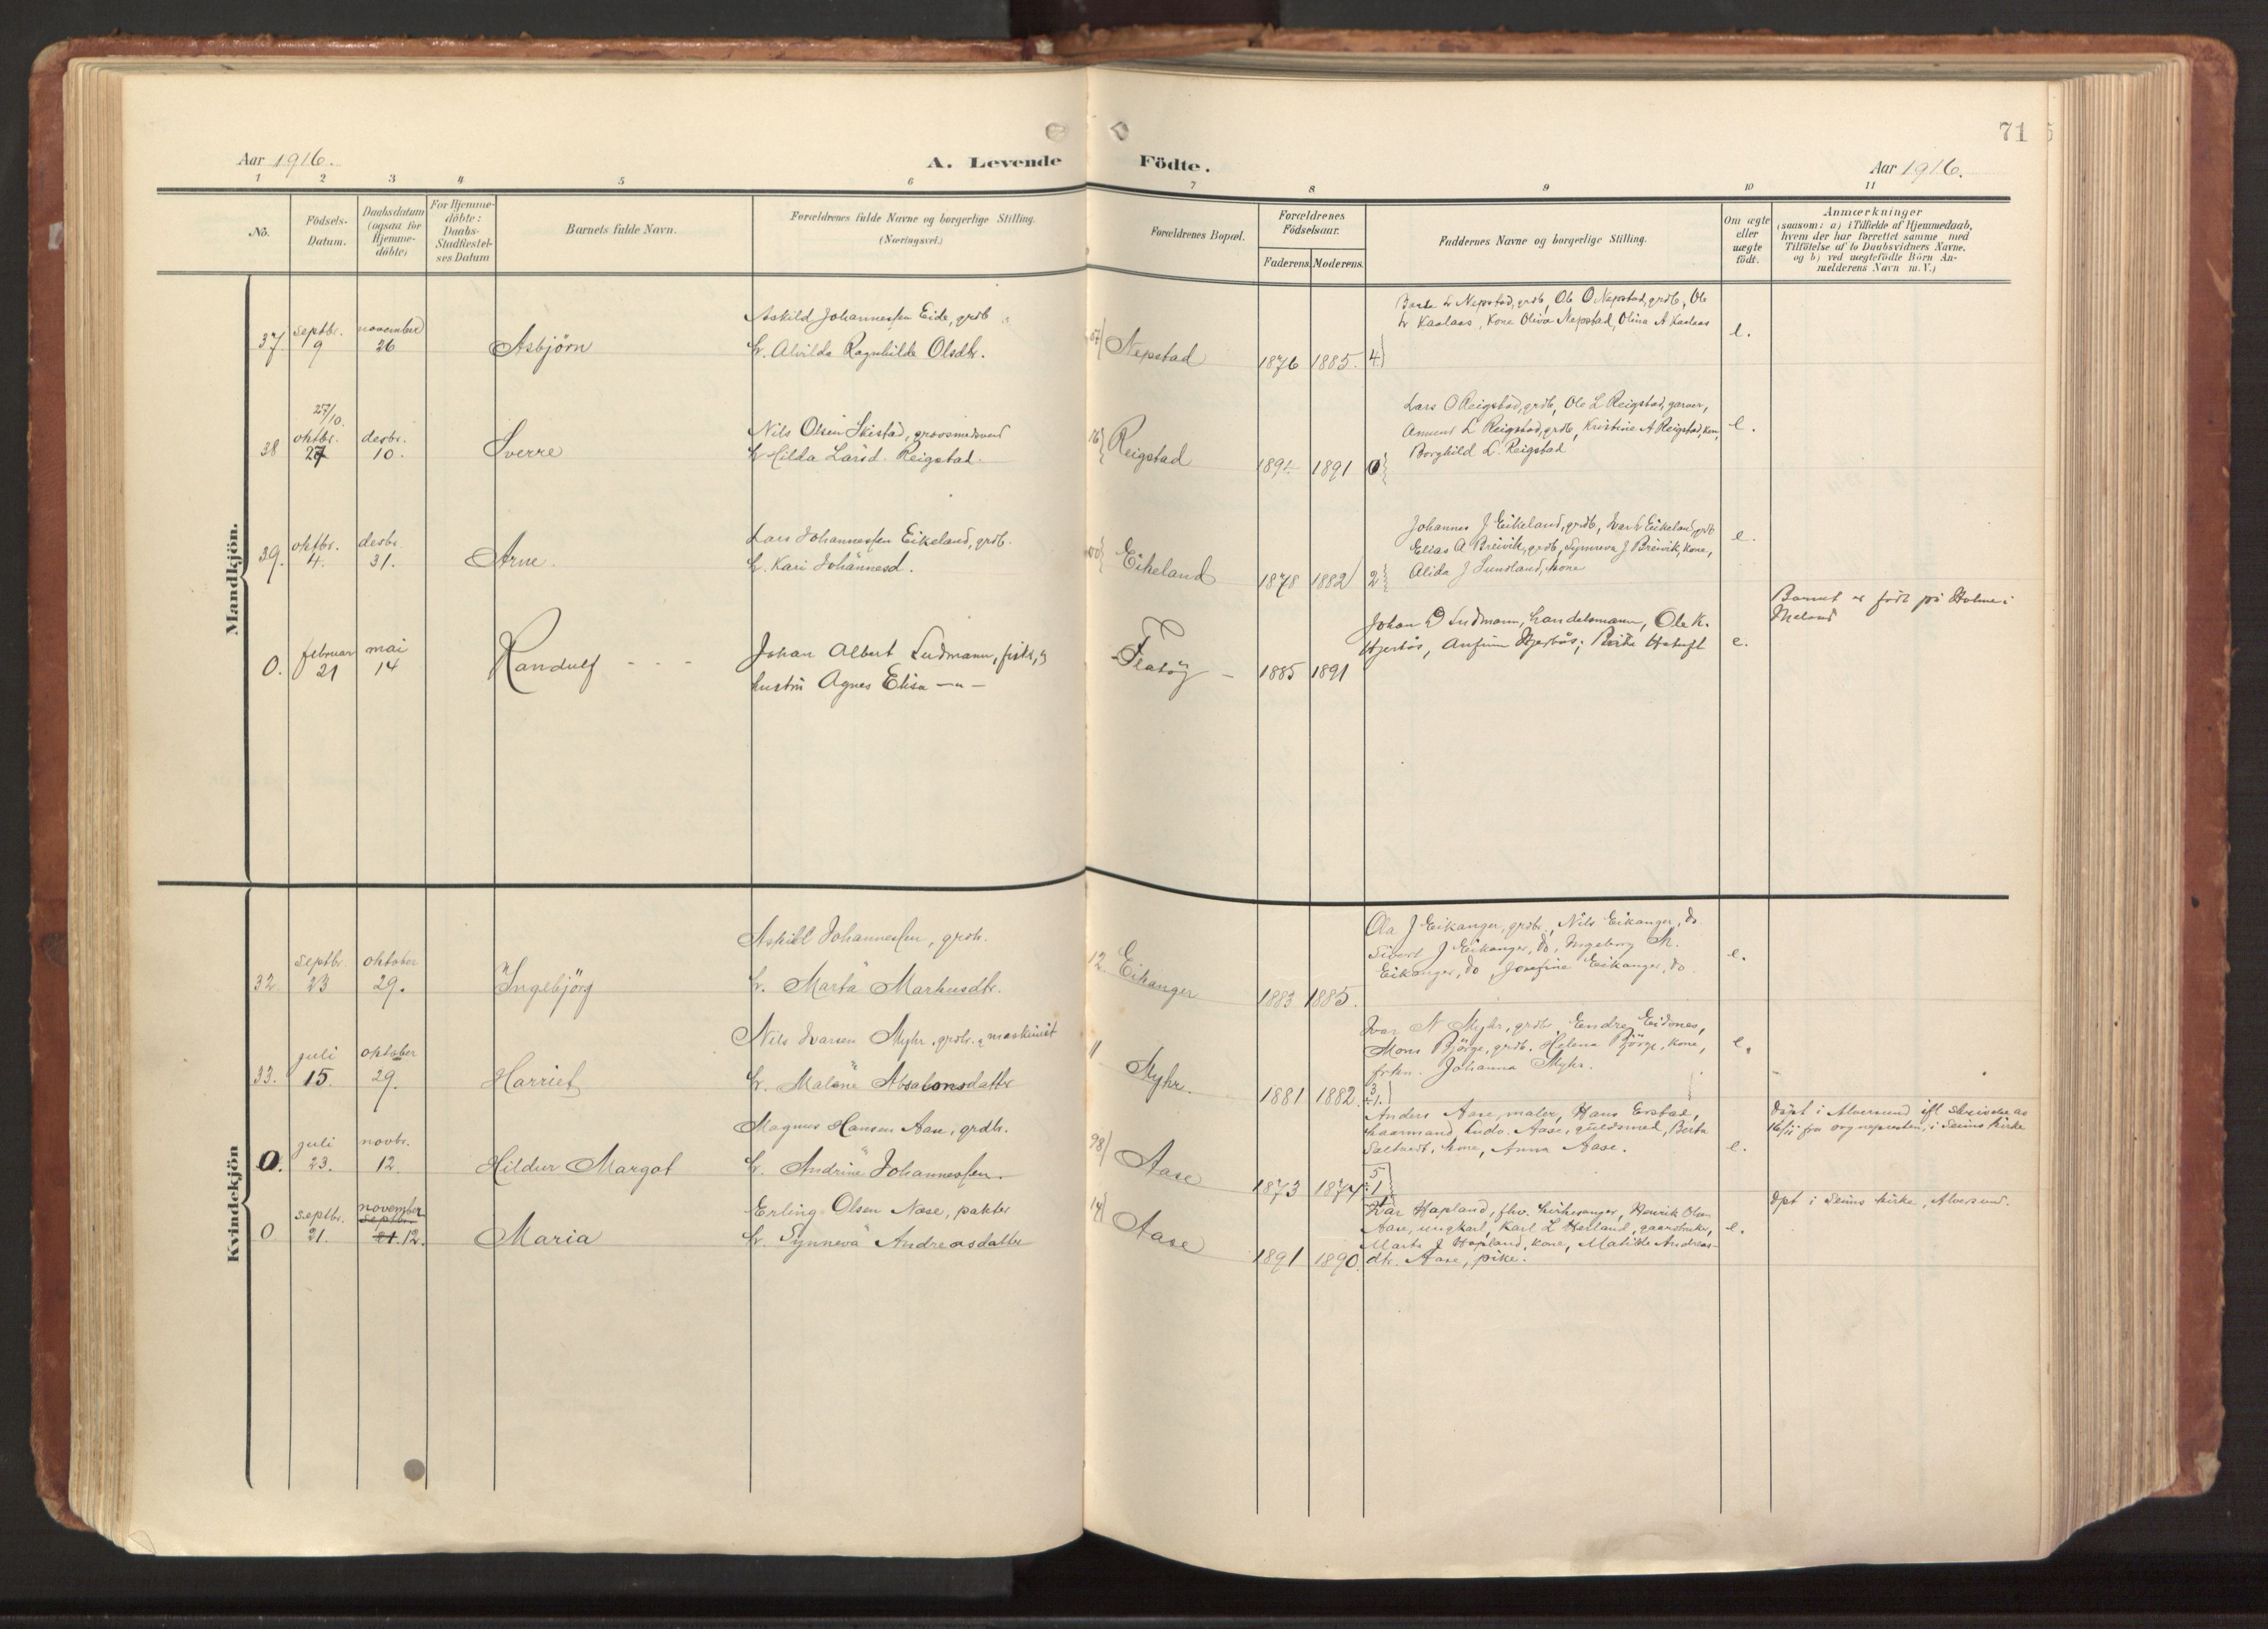 71
Aar 1916.
A. Levende Födte.
Aar 1916.
1 2 3 4 5 6 7 8 9 10 11
No.
Födsels-
Datum.
Daabsdatum
(ogsaa for
Hjemme-
döbte)
For Hjemme-
döbte:
Daabs-
Stadfæstel-
ses Datum
Barnets fulde Navn.
Forældrenes fulde Navne og borgerlige Stilling.
(Næringsvei.)
Forældrenes Bopæl.
Forældrenes
Födselsaar.
Faderens. Moderens.
Faddernes Navne og borgerlige Stilling.
Om ægte
eller
uægte
födt.
Anmærkninger
(saasom: a) i Tilfælde af Hjemmedaab,
hvem der har forrettet samme med
Tilföielse af to Daabsvidners Navne.
og b) ved uægtefödte Börn An-
melderens Navn m. V.)
Mandkjön.
37 septbr. 9 november 26 Asbjörn
Askild Johannessen Eide, grdb
h. Alvilda Ragnhilda Olsdtr.
Nepstad 1876 1885. 4
L Nepstad, grdb, Ole O Nepstad, grdb, Ole
L Kaalaas, Kone Oliva Nepstad, Olina A Kaalaas
e.
27/10.
38 oktbr. 27 desbr. 10. Sverre
Nils Olsen Skistad, grovsmedsvend
h Hilda Larsd. Reigstad.
16 Reigstad 1891 0
Lars O Reigstad, grdb, Ole L Reigstad, garver,
Amund L Reigstad, grdb, Kristine A Reigstad, kone,
Borghild L. Reigstad
e.
39. oktbr. 4. desbr. 31. Arne.
Lars Johannessen Eikeland, grdb.
h. Kari Johannesd.
Eikeland 1878 1882 2
Johannes J Eikeland, grdb, Ivar L Eikeland, grdb
Elias A Breivik, grdb, Synneva J Breivik, kone,
Alida J Sundland, kone
e.
0. februar 21 mai 14 Randulf
Johan Albert Ludmann, fisk,
hustru Agnes Elisa — " —
Flatöy 1885 1891
Johan D Ludmann, handelsmann, Ole K.
Hjertås, Anfinn Hjertås, Berta Hatuft
e.
Barnet er födt på Holme i
Meland
Kvindekjön
32 septbr. 23 oktober 29. Ingebjörg
Askill Johannessen, grdb.
h. Marta Markusdtr.
12 Eikanger 1883 1885.
Ola J Eikanger, grdbr, Nils Eikanger, do
Sivert J Eikanger, do, Ingeborg M.
Eikanger, do, Josefine Eikanger, do.
e.
33. juli 15. oktober 29. Harriet
Nils Ivarsen Myhr, grdbr. & maskinist
h. Malene Absalonsdatter
11 Myhr. 1881 1882. 3
Ivar N Myhr, grdb, Endre Eidsnes,
Mons Bjørge, grdb. Helena Bjørge, kone,
frken. Johanna Myhr.
e.
0. juli 23. novbr. 12. Hildur Margot
Magnus Hansen Aase, grdb.
h. Andrine Johannessen.
98 Aase 1873 1874 5
Anders Aase, maler, Hans Erstad,
Ludv. Aase, guldsmed, Berta
kone, Anna Aase.
e.
döpt i Alversund ifl. skrivelse av
16/11 fra sognepresten, i Seims kirke
0 septbr. 21. november septbr. 21. 12. Maria
Erling Olsen Næse, pakter
h. Synneva Andreasdatter
14 Aase 1891 1890.
Ivar Hopland, fhv. kirkesanger, Henrik Olsen
Aase, ungkarl, Karl L Herland, gaardbruker,
Marta J Hopland, kone, Matilde Andreas-
dtr. Aase, pike.
e.
Dpt i Seims kirke, Alversund.